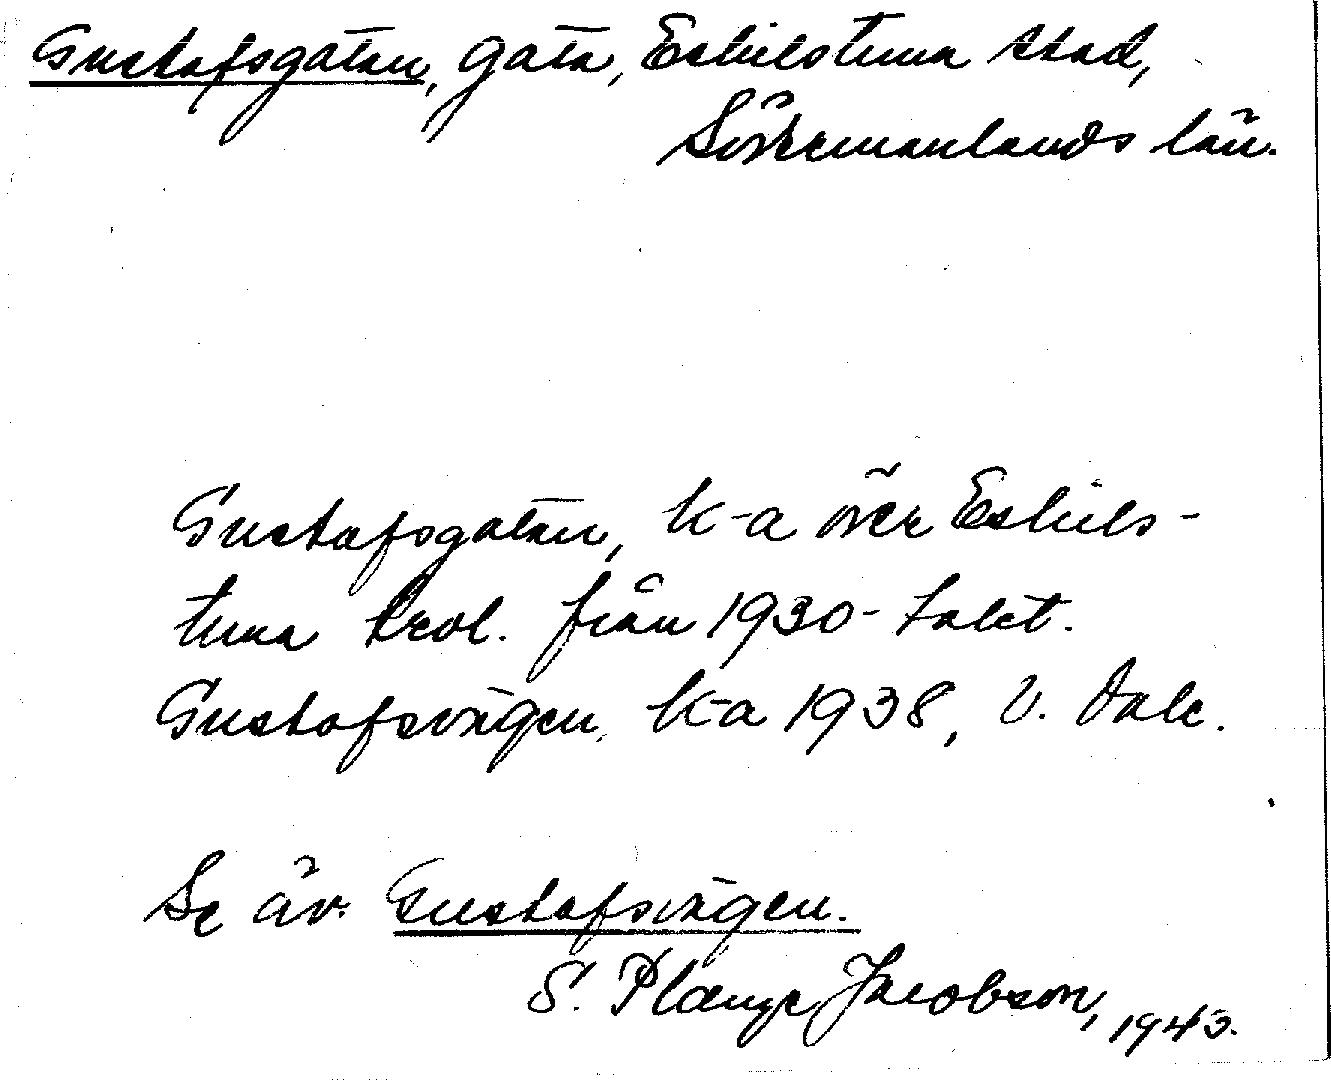 Gustafsgatan, gata, Eskilstuna stad,
Södermanlands län.
Gustafsgatan, k-a över Eskils-
tuna trol. från 1930-talet.
Gustafsvägen, k-a 1938, V. Dale.
Se äv. Gustafsvägen.
S. Plænge Jacobson, 1943.